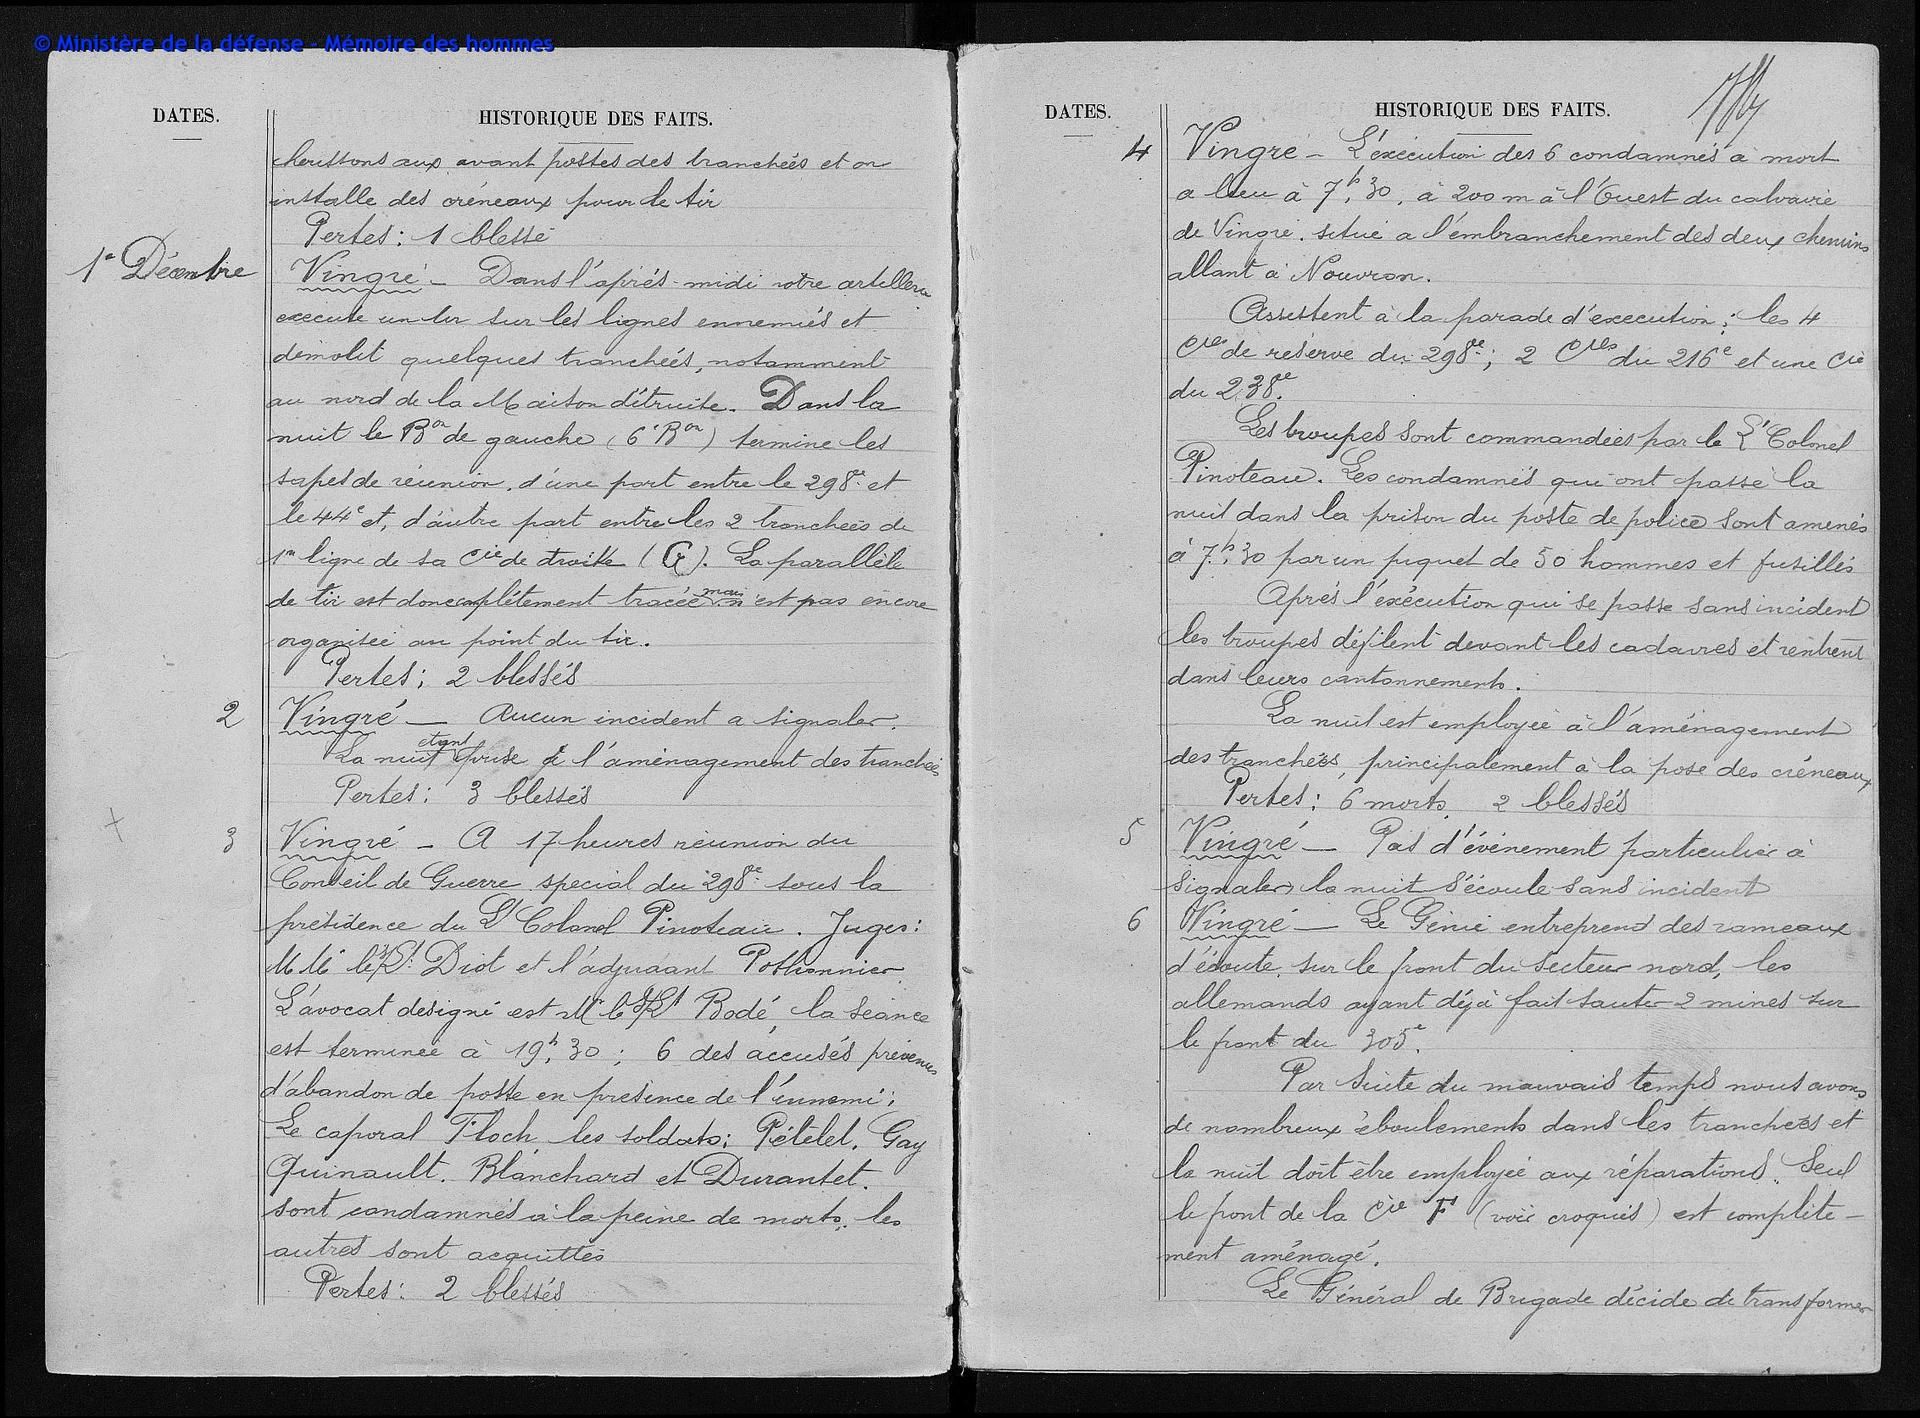 © Ministère de la défense - Mémoire des hommes
DATES.
HISTORIQUE DES FAITS.
aux avant postes des tranchées et on
installe des créneaux pour le tir
Pertes: 1 blessé
1er Décembre
Vingré - Dans l'après-midi notre artillerie
execute un tir sur les lignes ennemies et
démolit quelques tranchées, notamment
au nord de la Maison détruite. Dans la
nuit le Bon de gauche (6e Bon) termine les
sapes de réunion, d'une part entre le 298e et
le 44e et, d'autre part entre les 2 tranchées de
1re ligne de sa Cie de droite (G). La parallèle
de tir est donc complètement tracée mais n'est pas encore
organisée au point du tir.
Pertes: 2 blessés
2
Vingré — Aucun incident a signaler.
La nuit étant prise à l'aménagement des tranchées
Pertes: 3 blessés
3
Vingré - A 17 heures réunion du
Conseil de Guerre special du 298e sous la
présidence du Lt Colonel Pinoteau. Juges:
MM le s/Lt Diot et l'adjudant Pothonnier
L'avocat désigné est M le s/Lt Bodé, la séance
est terminée à 19h,30; 6 des accusés prévenus
d'abandon de poste en présence de l'ennemi:
Le caporal Floch, les soldats: Pételet, Gay
Quinault. Blanchard et Durantet.
sont condamnés à la peine de mort, les
autres sont acquittés
Pertes: 2 blessés
DATES.
HISTORIQUE DES FAITS.
4
Vingré - L'exécution des 6 condamnés à mort
a lieu à 7h,30, à 200 m à l'Ouest du calvaire
de Vingré, situé a l'embranchement des deux chemins
allant à Nouvron.
Assistent à la parade d'execution: les 4
Cies de réserve du 298e; 2 Cies du 216e et une Cie
du 238e.
Les troupes sont commandées par le Lt Colonel
Pinoteau. Les condamnés qui ont passé la
nuit dans la prison du poste de police sont amenés
à 7h,30 par un piquet de 50 hommes et fusillés
Après l'exécution qui se passe sans incident
les troupes défilent devant les cadavres et rentrent
dans leurs cantonnements.
La nuit est employée à l'aménagement
des tranchées, principalement à la pose des créneaux
Pertes: 6 morts, 2 blessés
5
Vingré — Pas d'événement particulier à
signaler, la nuit s'écoule sans incident
6
Vingré — Le Génie entreprend des rameaux
d'écoute, sur le front du secteur nord, les
allemands ayant déjà fait sauter 2 mines sur
le front du 305e.
Par suite du mauvais temps nous avons
de nombreux éboulements dans les tranchées et
la nuit doit être employée aux réparations. Seul
le front de la Cie F (voir croquis) est complète-
ment aménagé.
Le Général de Brigade décide de transformer